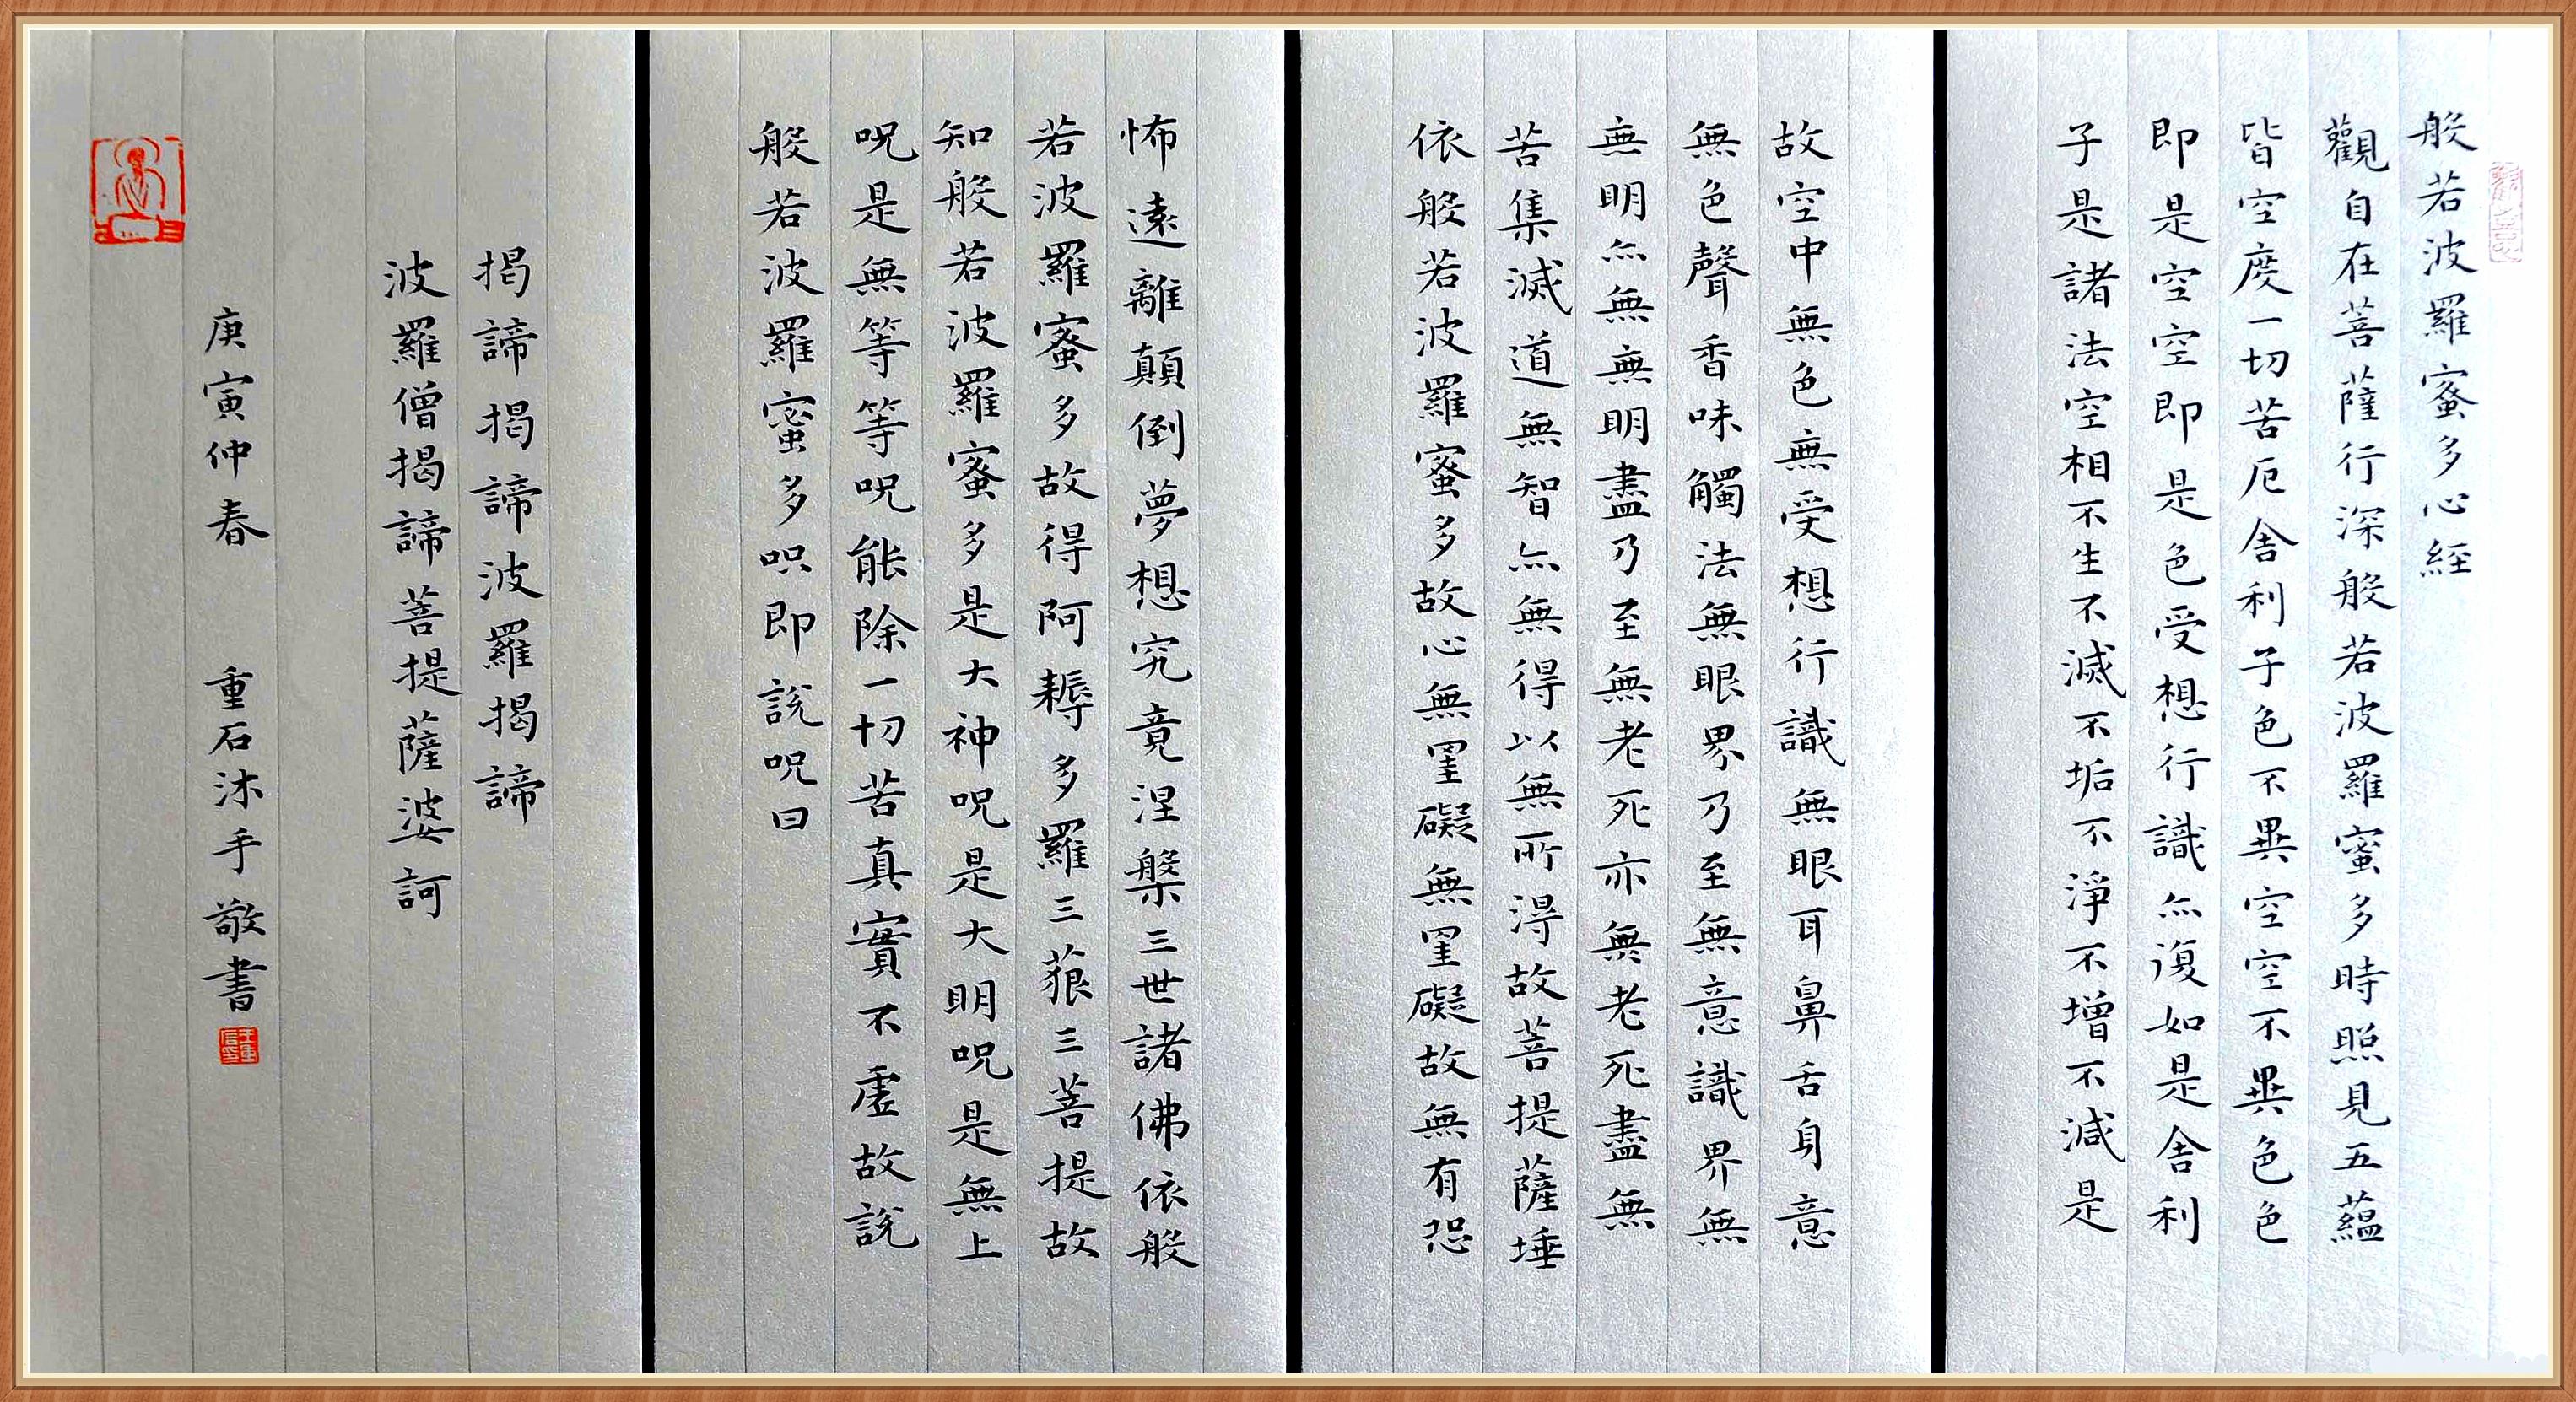 般若波羅蜜多心経
觀自在菩薩行深般若波羅蜜多時照見五蘊
皆空度一切苦厄舍利子色不異空空不異色色
即是空空即是色受想行識亦復如是舍利
子是諸法空相不生不滅不垢不淨不增不減是
故空中無色無受想行識無眼耳鼻舌身意
無色聲香味觸法無眼界乃至無意識界無
無明亦無無明盡乃至無老死亦無老死盡無
苦集滅道無智亦無得以無所得故菩提薩埵
依般若波羅蜜多故心無罣礙無罣礙故無有恐
怖遠離顛倒夢想究竟涅槃三世諸佛依般
若波羅蜜多故得阿耨多羅三藐三菩提故
知般若波羅蜜多是大神呪是大明呪是無上
呪是無等等呪能除一切苦真實不虛故說
般若波羅蜜多呪即說呪曰
揭諦揭諦波羅揭諦
波羅僧揭諦菩提薩婆訶
庚寅仲春 重石沐手敬書